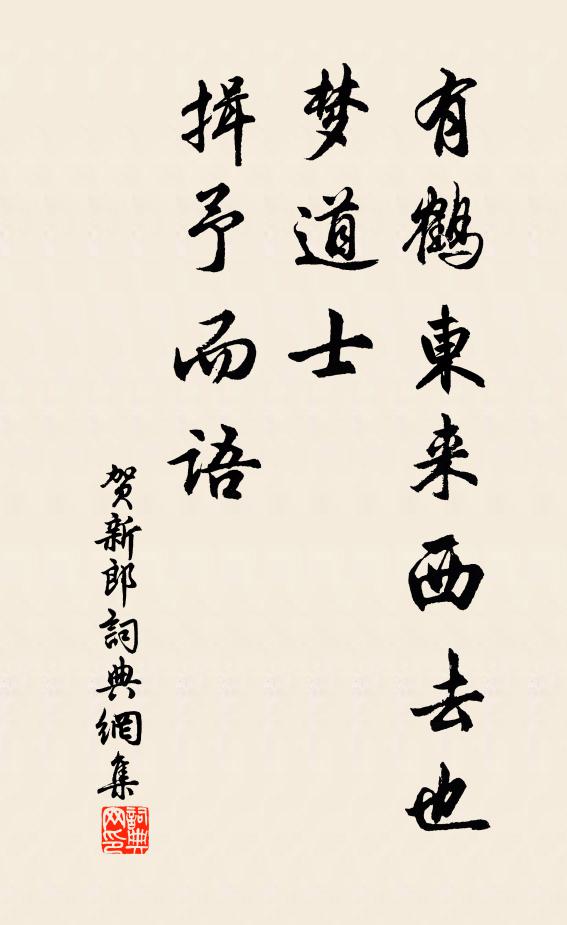 有鹤東来西去也
梦道士
揖予而语
贺新郎詞典網集
詞典网印